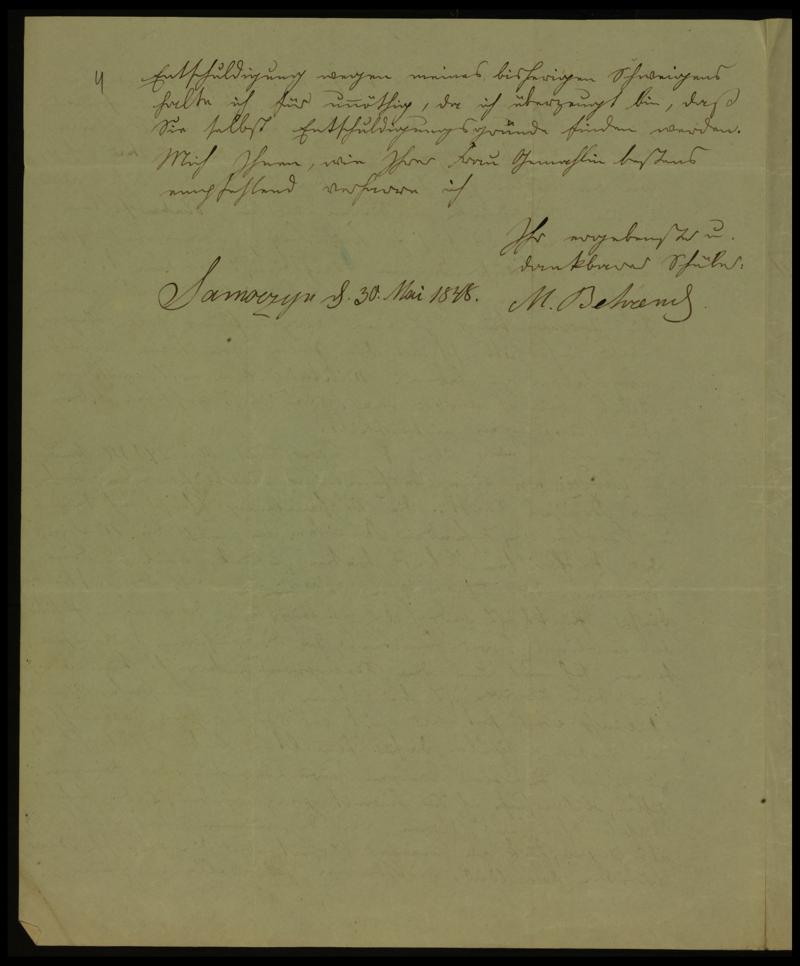 4
Entschuldigung wegen meines bisherigen Schweigens
halte ich für unnöthig, da ich überzeugt bin, daß
Sie selbst Entschuldigungsgründe finden werden.
Mich Ihnen, wie Ihrer Frau Gemahlin bestens
empfehlend verharre ich
Ihr ergebenster u.
dankbarer Schüler
Samoczyn d. 30. Mai 1848. M. Behrend